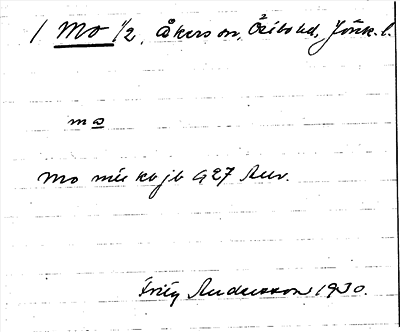 1 Mo 1/2, Åkers sn, Östbo hd, Jönk. l.
mɷ
Mo mée kbjb 927 Auv.
Fritz Andersson 1930.